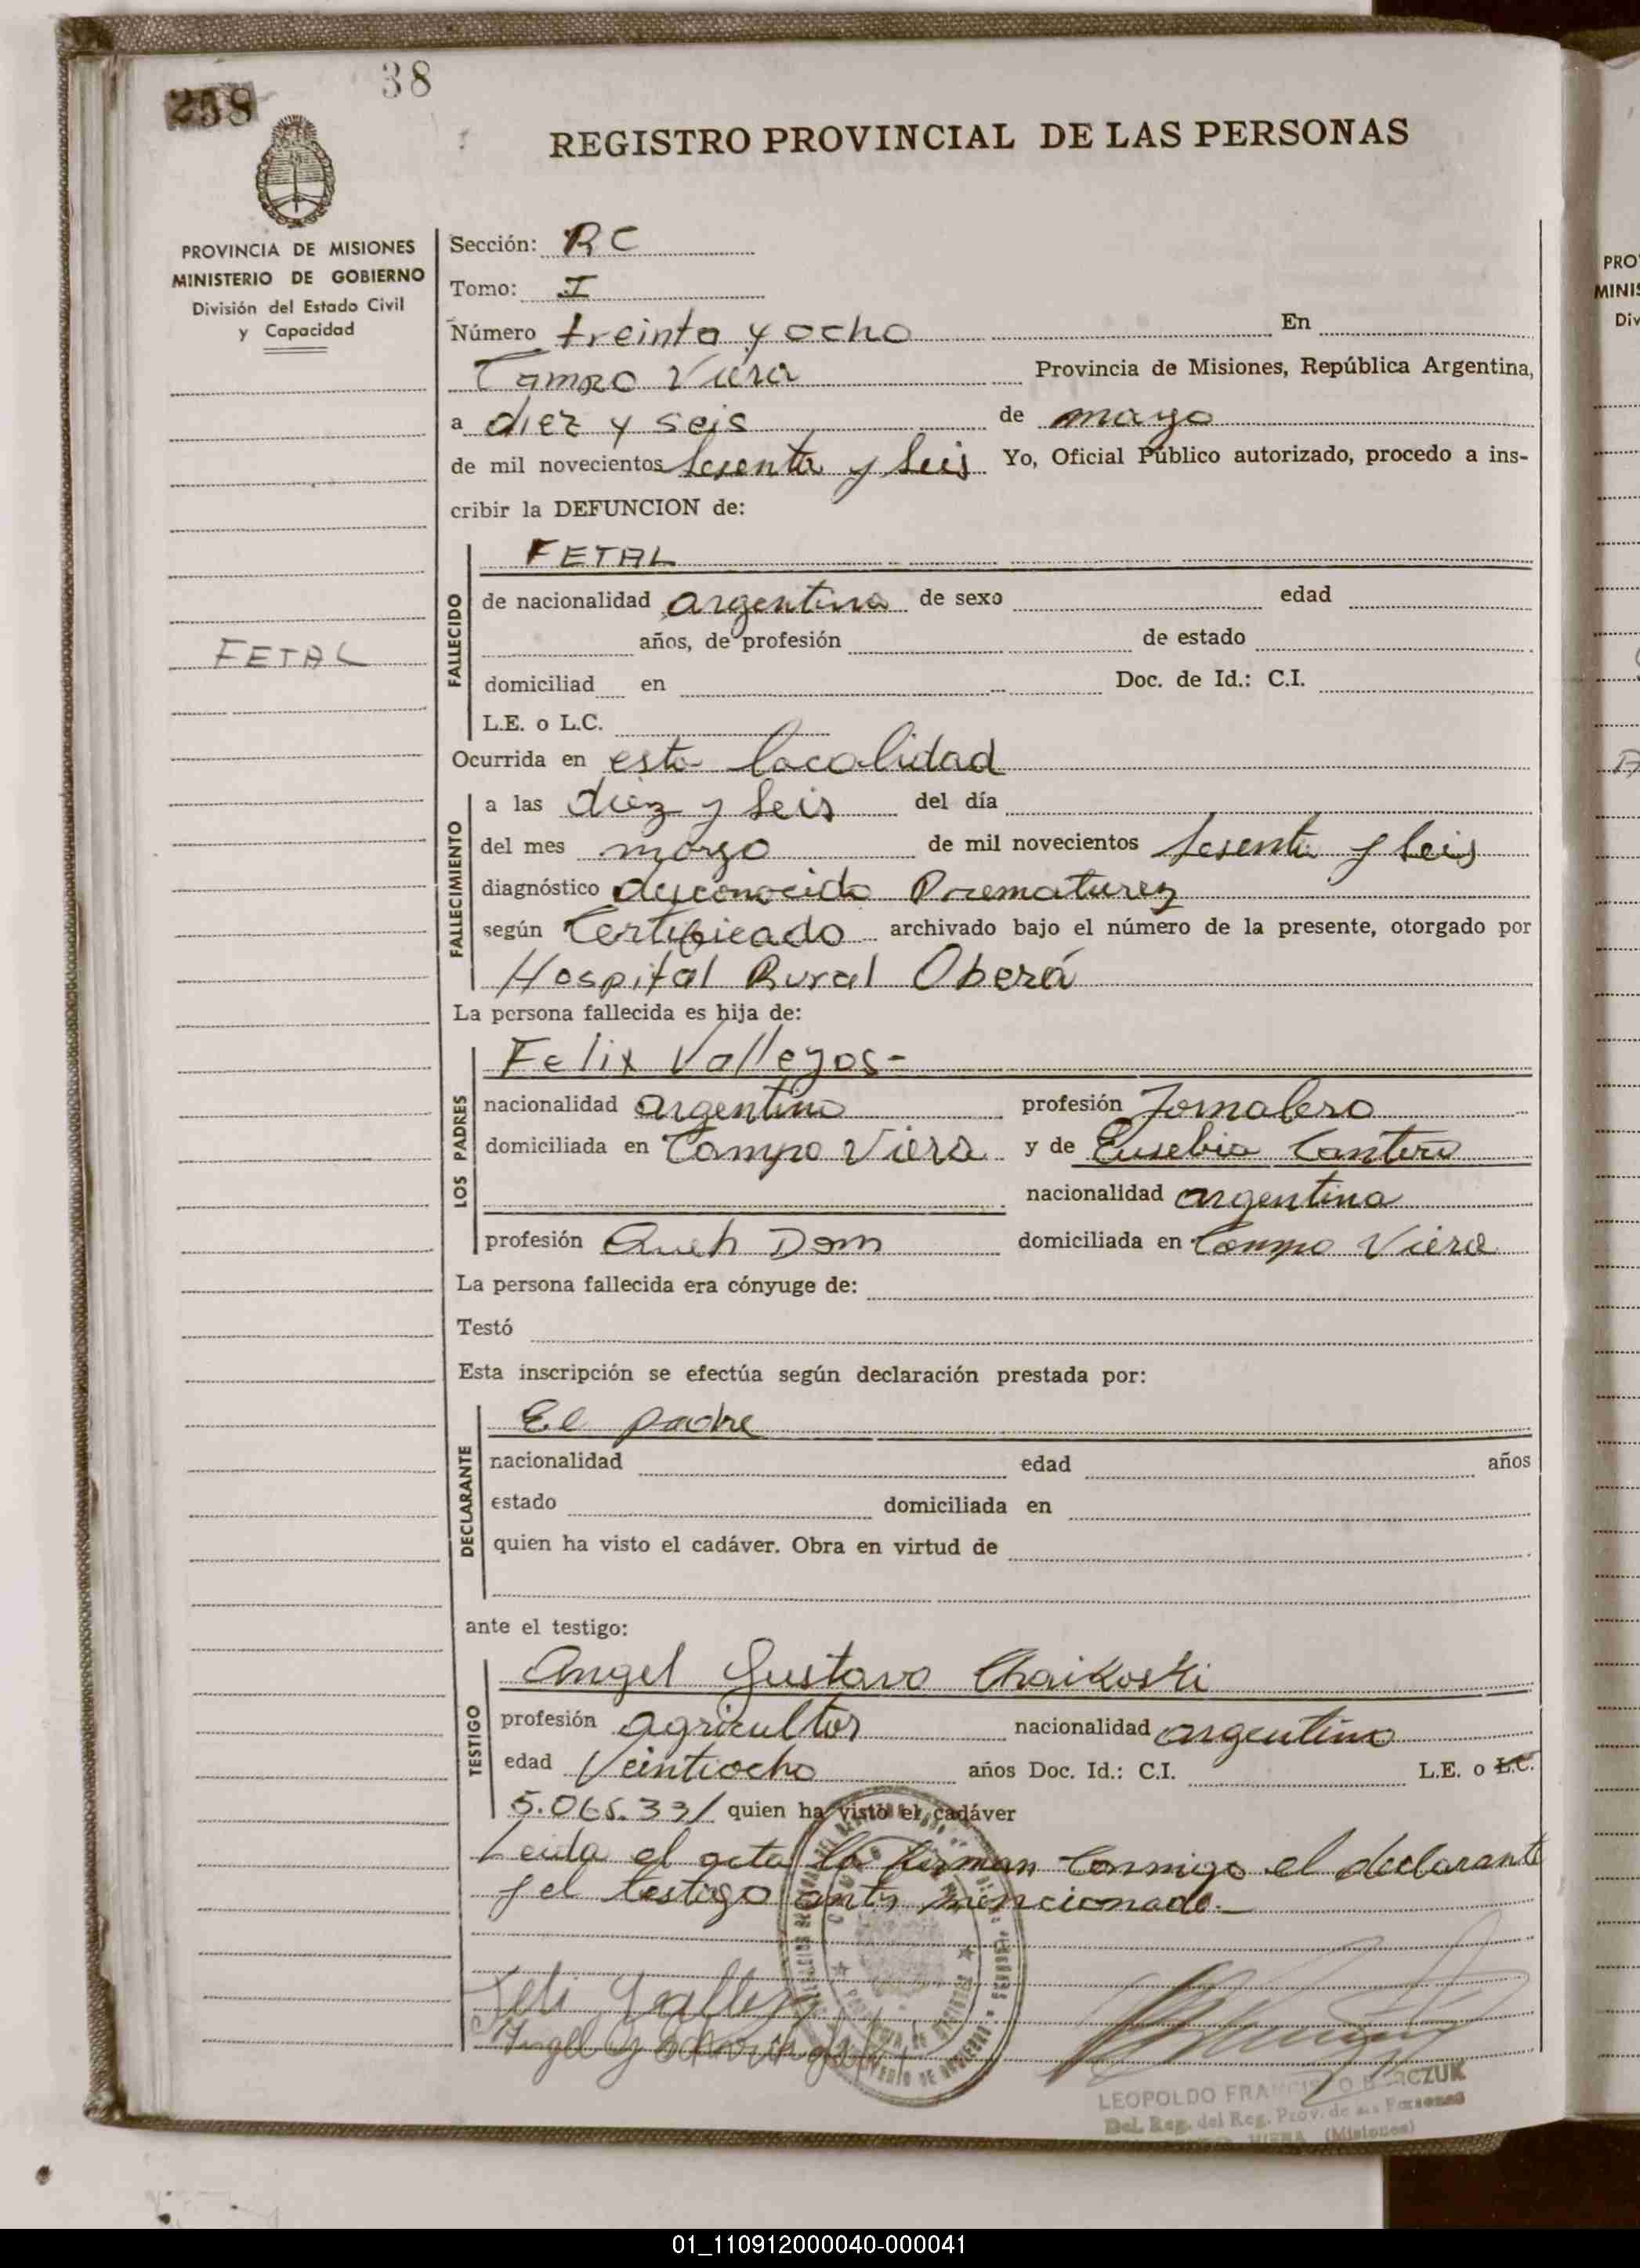 258
38
REGISTRO PROVINCIAL DE LAS PERSONAS
PROVINCIA DE MISIONES
MINISTERIO DE GOBIERNO
División del Estado Civil
y Capacidad
FETAL
Sección: RC
Tomo: I
Número treinta y ocho En
Campo Viera Provincia de Misiones, República Argentina,
a diez y seis de mayo
de mil novecientos sesenta y seis Yo, Oficial Público autorizado, procedo a ins-
cribir la DEFUNCION de:
FALLECIDO
FETAL
de nacionalidad argentina de sexo edad
años, de profesión de estado
domiciliad en Doc. de Id.: C.I.
L.E. o L.C.
Ocurrida en esta localidad
FALLECIMIENTO
a las diez y seis del día
del mes marzo de mil novecientos sesenta y seis
diagnóstico desconocido Prematurez
según Certificado archivado bajo el número de la presente, otorgado por
Hospital Rural Oberá
La persona fallecida es hija de:
LOS PADRES
Felix Vallejos-
nacionalidad argentino profesión Jornalero
domiciliada en Campo Viera y de Eusebia Cantero
nacionalidad argentina
profesión Queh Dom domiciliada en Campo Viera
La persona fallecida era cónyuge de:
Testó
Esta inscripción se efectúa según declaración prestada por:
DECLARANTE
El padre
nacionalidad edad años
estado domiciliada en
quien ha visto el cadáver. Obra en virtud de
ante el testigo:
TESTIGO
Angel Gustavo Chaikoski
profesión agricultor nacionalidad argentino
edad Veintiocho años Doc. Id.: C.I. L.E. o L.C.
5.065.331 quien ha visto el cadáver
Leida el acta la firman conmigo el declarante
y el testigo antes mencionado.-
LEOPOLDO
Del. Reg. del Reg. Prov. de las Personas
VIERA (Misiones)
PRO
MINIS
Div
01_110912000040-000041